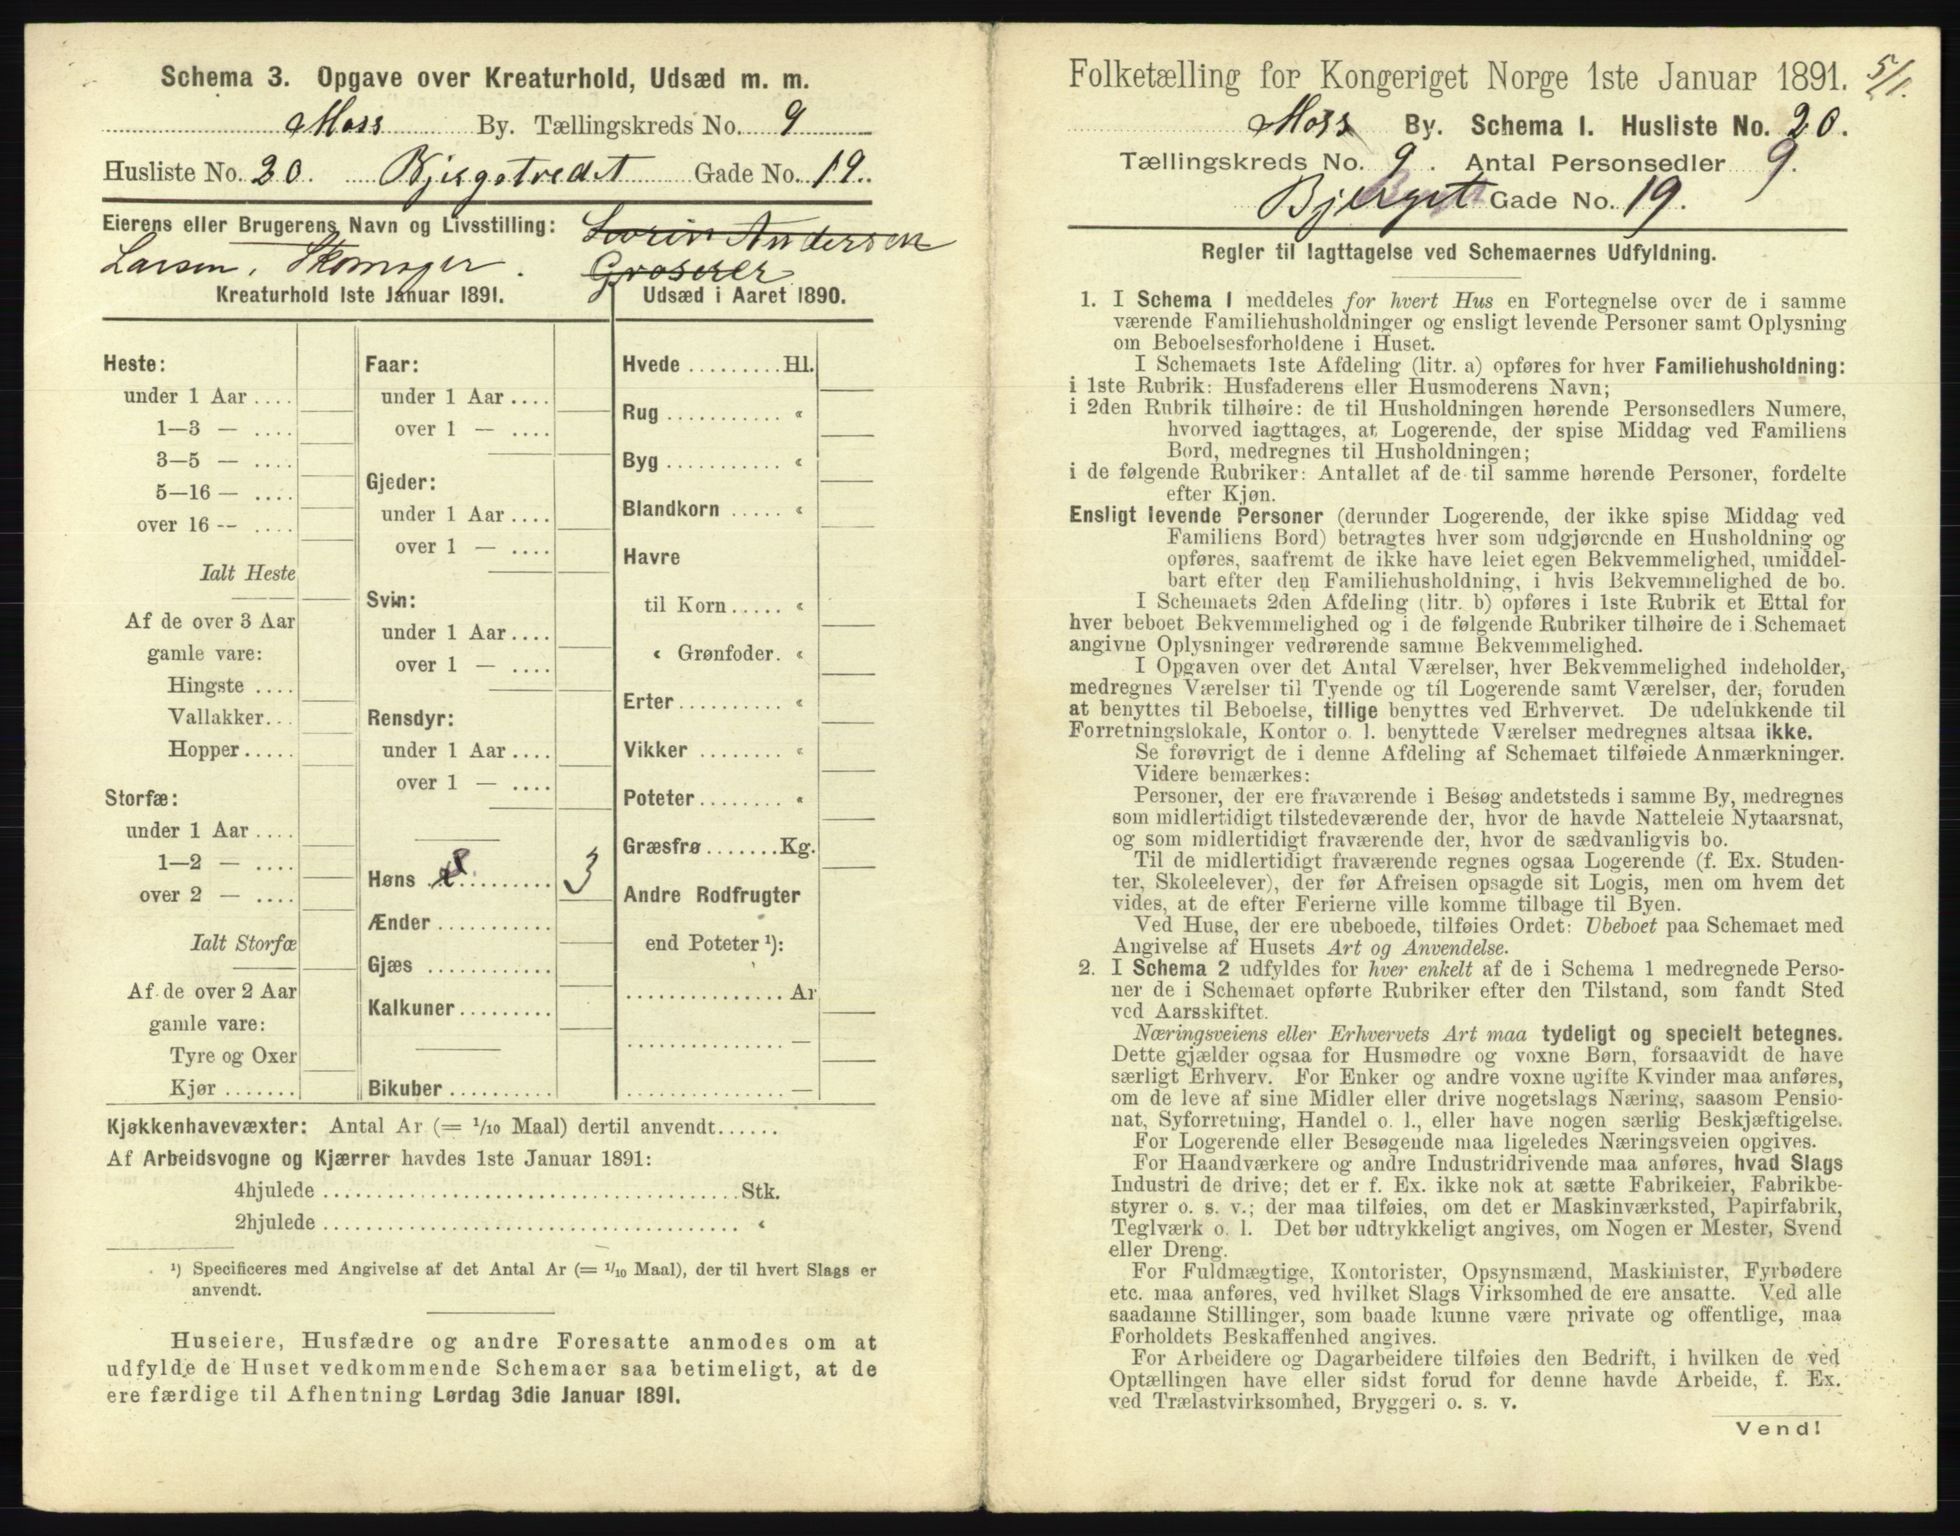 Schema 3. Opgave over Kreaturhold, Udsæd m. m.
Moss By. Tællingskreds No. 9
Husliste No. 20. Bjergstredet Gade No. 19.
Eierens eller Brugerens Navn og Livsstilling: Sørin Andersen
Larsen, Skomager. Groserer
Kreaturhold 1ste Januar 1891.
Heste:
under 1 Aar ....
1—3 — ....
3—5 — ....
5—16 — ....
over 16 -- ....
Ialt Heste
Af de over 3 Aar
gamle vare:
Hingste ....
Vallakker...
Hopper.....
Storfæ:
under 1 Aar ....
1—2 — ....
over 2 — ....
Ialt Storfæ
Af de over 2 Aar
gamle vare:
Tyre og Oxer
Kjør .......
Faar:
under 1 Aar ....
over 1 — ....
Gjeder:
under 1 Aar ....
over 1 — ....
Svin:
under 1 Aar ....
over 1 — ....
Rensdyr:
under 1 Aar ....
over 1 — ....
Høns .......... 3
Ænder ...........
Gjæs ............
Kalkuner.........
Bikuber ..........
Udsæd i Aaret 1890.
Hvede .........Hl.
Rug ........... «
Byg ........... «
Blandkorn ..... «
Havre
til Korn ..... «
« Grønfoder. «
Erter.......... «
Vikker ........ «
Poteter........ «
Græsfrø .......Kg.
Andre Rodfrugter
end Poteter ¹):
............... Ar
............... —
............... —
Kjøkkenhavevæxter: Antal Ar (= 1/10 Maal) dertil anvendt......
Af Arbeidsvogne og Kjærrer havdes 1ste Januar 1891:
4hjulede ........................................Stk.
2hjulede ........................................ «
¹) Specificeres med Angivelse af det Antal Ar (= 1/10 Maal), der til hvert Slags er
anvendt.
Huseiere, Husfædre og andre Foresatte anmodes om at
udfylde de Huset vedkommende Schemaer saa betimeligt, at de
ere færdige til Afhentning Lørdag 3die Januar 1891.
Folketælling for Kongeriget Norge 1ste Januar 1891. 5/1.
Moss By. Schema I. Husliste No. 20.
Tællingskreds No. 9. Antal Personsedler 9.
Bjerget Gade No. 19.
Regler til Iagttagelse ved Schemaernes Udfyldning.
1. I Schema 1 meddeles for hvert Hus en Fortegnelse over de i samme
værende Familiehusholdninger og ensligt levende Personer samt Oplysning
om Beboelsesforholdene i Huset.
I Schemaets 1ste Afdeling (litr. a) opføres for hver Familiehusholdning:
i 1ste Rubrik: Husfaderens eller Husmoderens Navn;
i 2den Rubrik tilhøire: de til Husholdningen hørende Personsedlers Numere,
hvorved iagttages, at Logerende, der spise Middag ved Familiens
Bord, medregnes til Husholdningen;
i de følgende Rubriker: Antallet af de til samme hørende Personer, fordelte
efter Kjøn.
Ensligt levende Personer (derunder Logerende, der ikke spise Middag ved
Familiens Bord) betragtes hver som udgjørende en Husholdning og
opføres, saafremt de ikke have leiet egen Bekvemmelighed, umiddel-
bart efter den Familiehusholdning, i hvis Bekvemmelighed de bo.
I Schemaets 2den Afdeling (litr. b) opføres i 1ste Rubrik et Ettal for
hver beboet Bekvemmelighed og i de følgende Rubriker tilhøire de i Schemaet
angivne Oplysninger vedrørende samme Bekvemmelighed.
I Opgaven over det Antal Værelser, hver Bekvemmelighed indeholder,
medregnes Værelser til Tyende og til Logerende samt Værelser, der, foruden
at benyttes til Beboelse, tillige benyttes ved Erhvervet. De udelukkende til
Forretningslokale, Kontor o. l. benyttede Værelser medregnes altsaa ikke.
Se forøvrigt de i denne Afdeling af Schemaet tilføiede Anmærkninger.
Videre bemærkes:
Personer, der ere fraværende i Besøg andetsteds i samme By, medregnes
som midlertidigt tilstedeværende der, hvor de havde Natteleie Nytaarsnat,
og som midlertidigt fraværende der, hvor de sædvanligvis bo.
Til de midlertidigt fraværende regnes ogsaa Logerende (f. Ex. Studen-
ter, Skoleelever), der før Afreisen opsagde sit Logis, men om hvem det
vides, at de efter Ferierne ville komme tilbage til Byen.
Ved Huse, der ere ubeboede, tilføies Ordet: Ubeboet paa Schemaet med
Angivelse af Husets Art og Anvendelse.
2. I Schema 2 udfyldes for hver enkelt af de i Schema 1 medregnede Perso-
ner de i Schemaet opførte Rubriker efter den Tilstand, som fandt Sted
ved Aarsskiftet.
Næringsveiens eller Erhvervets Art maa tydeligt og specielt betegnes.
Dette gjælder ogsaa for Husmødre og voxne Børn, forsaavidt de have
særligt Erhverv. For Enker og andre voxne ugifte Kvinder maa anføres,
om de leve af sine Midler eller drive nogetslags Næring, saasom Pensio-
nat, Syforretning, Handel o. l., eller have nogen særlig Beskjæftigelse.
For Logerende eller Besøgende maa ligeledes Næringsveien opgives.
For Haandværkere og andre Industridrivende maa anføres, hvad Slags
Industri de drive; det er f. Ex. ikke nok at sætte Fabrikeier, Fabrikbe-
styrer o. s. v.; der maa tilføies, om det er Maskinværksted, Papirfabrik,
Teglværk o. l. Det bør udtrykkeligt angives, om Nogen er Mester, Svend
eller Dreng.
For Fuldmægtige, Kontorister, Opsynsmænd, Maskinister, Fyrbødere
etc. maa anføres, ved hvilket Slags Virksomhed de ere ansatte. Ved alle
saadanne Stillinger, som baade kunne være private og offentlige, maa
Forholdets Beskaffenhed angives.
For Arbeidere og Dagarbeidere tilføies den Bedrift, i hvilken de ved
Optællingen have eller sidst forud for denne havde Arbeide, f. Ex.
ved Trælastvirksomhed, Bryggeri o. s. v.
Vend!